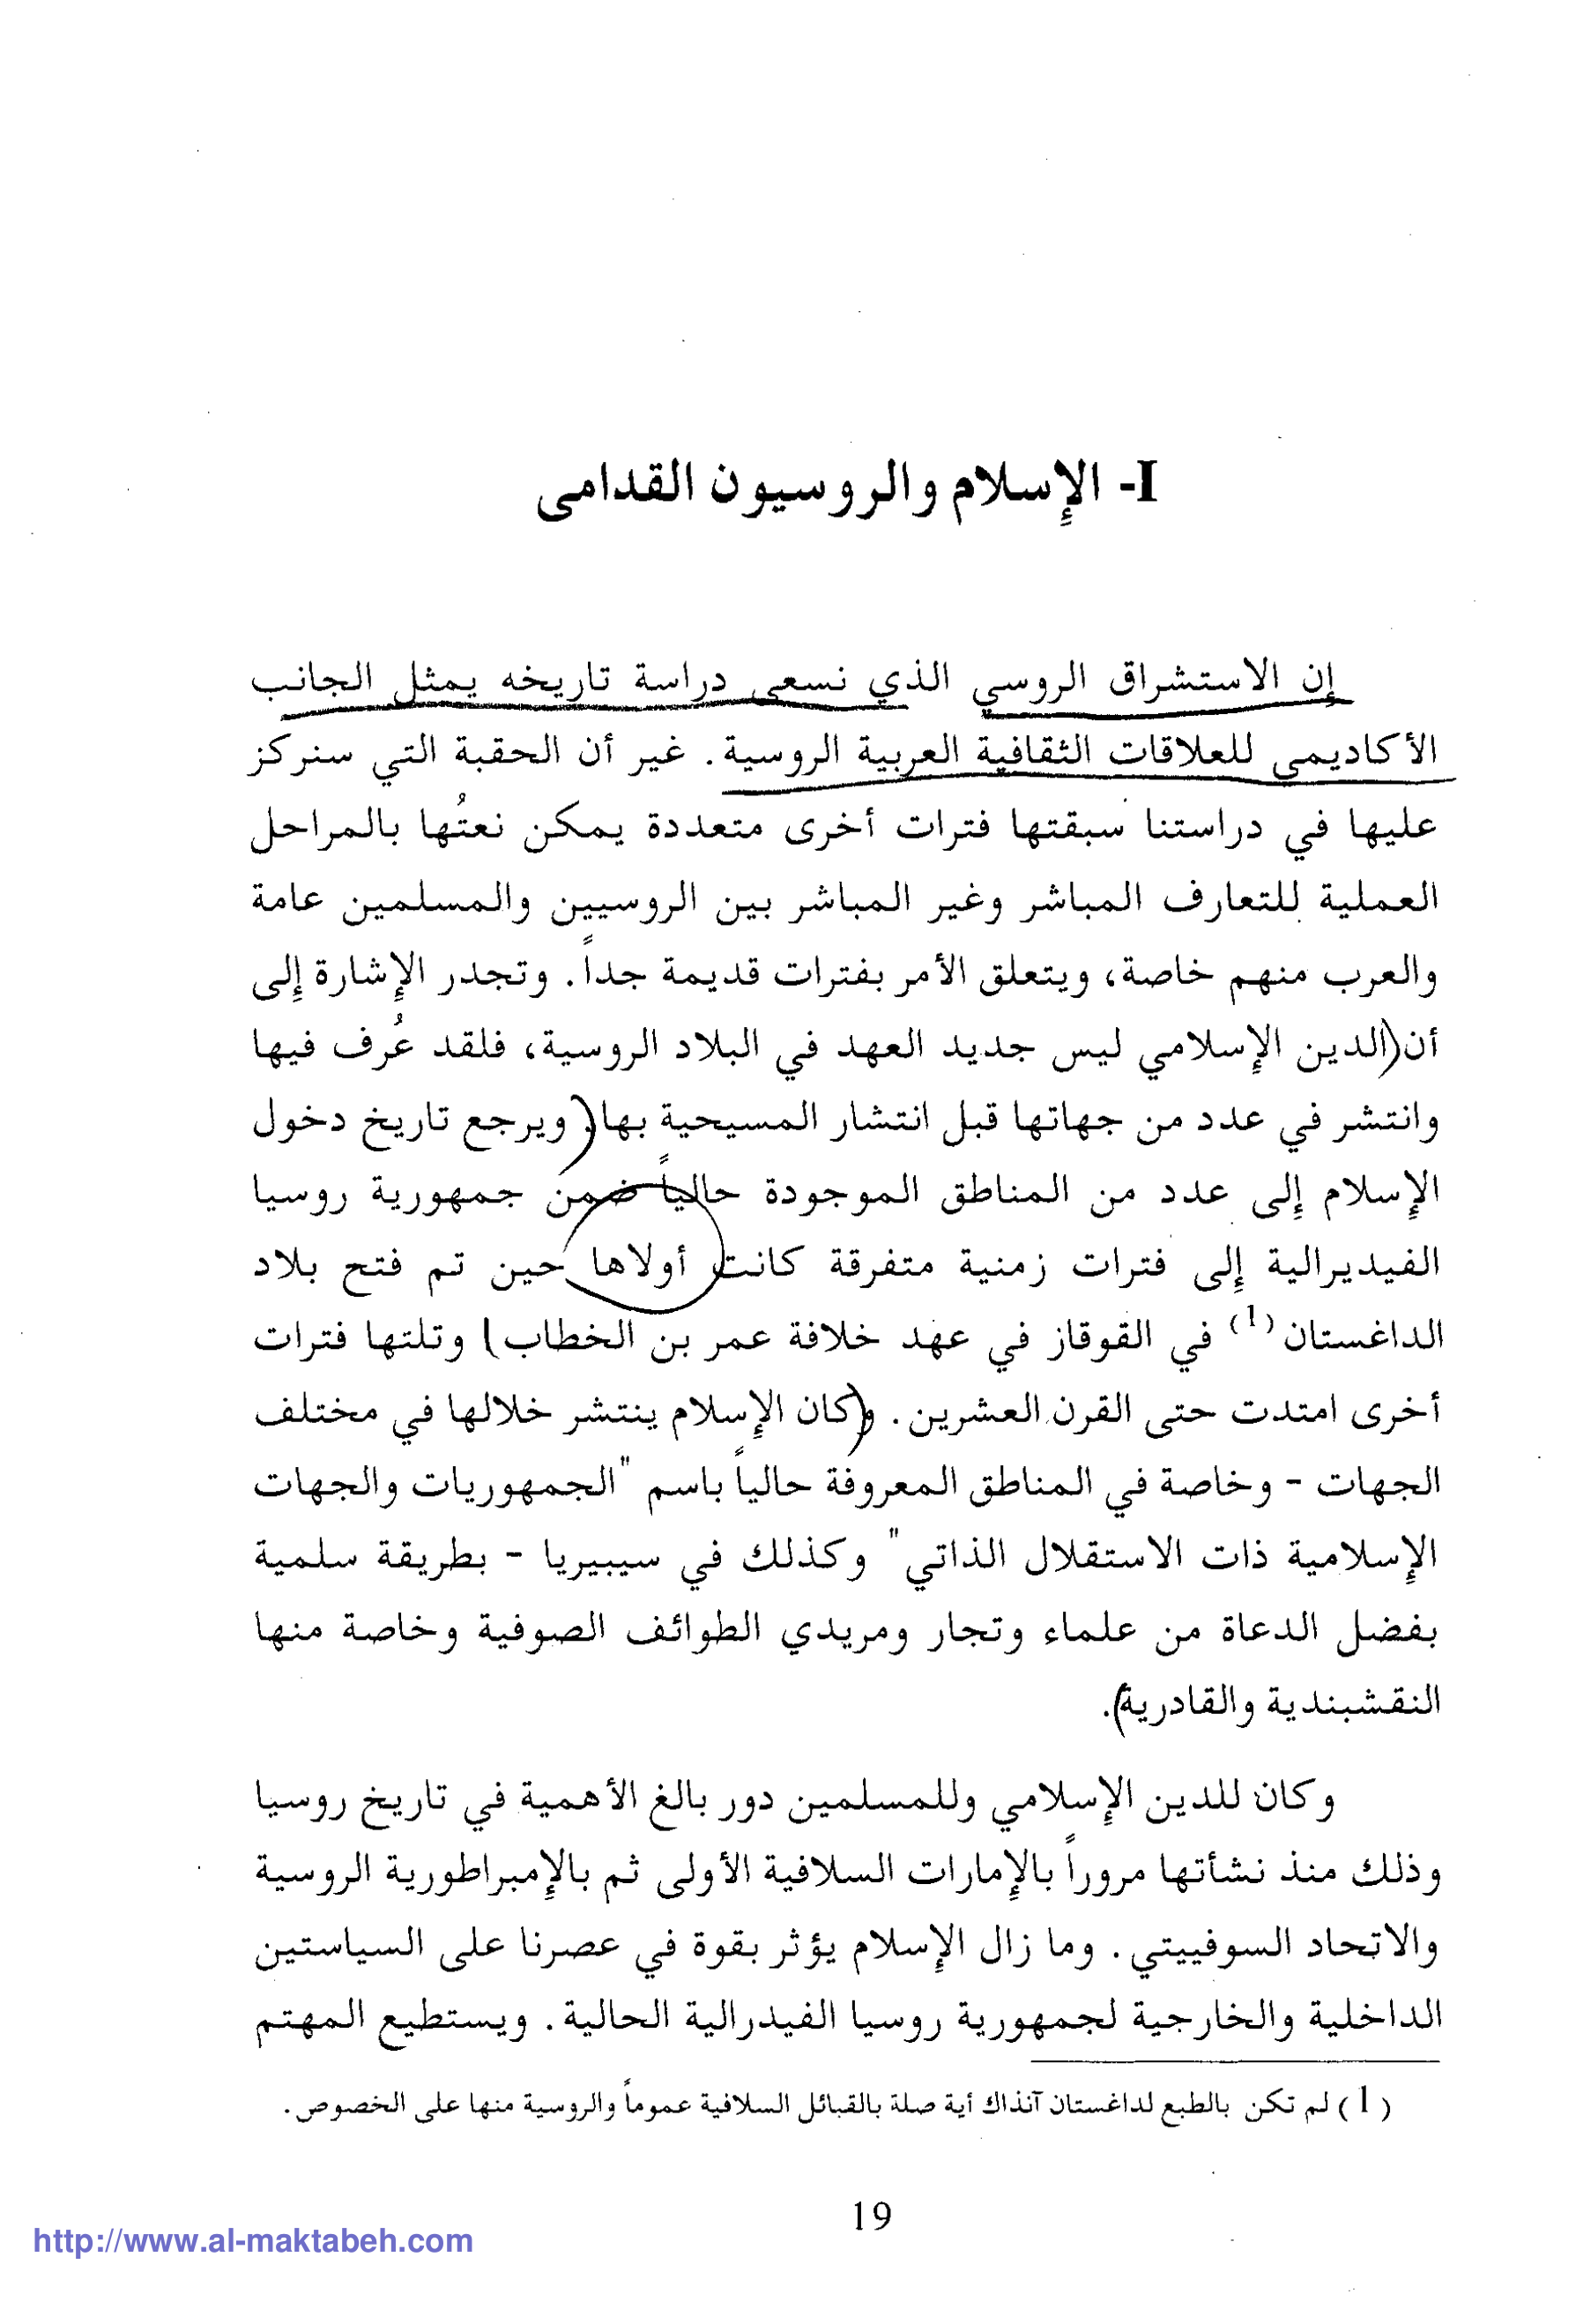 I- الإسلام والروسيون القدامى
إن الاستشراق الروسي الذي نسعى دراسة تاريخه يمثل الجانب
الأكاديمي للعلاقات الثقافية العربية الروسية. غير أن الحقبة التي سنركز
عليها في دراستنا سبقتها فترات أخرى متعددة يمكن نعتُها بالمراحل
العملية للتعارف المباشر وغير المباشر بين الروسيين والمسلمين عامة
والعرب منهم خاصة، ويتعلق الأمر بفترات قديمة جداً. وتجدر الإشارة إلى
أن الدين الإسلامي ليس جديد العهد في البلاد الروسية، فلقد عُرف فيها
وانتشر في عدد من جهاتها قبل انتشار المسيحية بها. ويرجع تاريخ دخول
الإسلام إلى عدد من المناطق الموجودة حالياً ضمن جمهورية روسيا
الفيديرالية إلى فترات زمنية متفرقة كانت أولاها حين تم فتح بلاد
الداغستان (1) في القوقاز في عهد خلافة عمر بن الخطاب) وتلتها فترات
أخرى امتدت حتى القرن العشرين. وكان الإسلام ينتشر خلالها في مختلف
الجهات - وخاصة في المناطق المعروفة حالياً باسم "الجمهوريات والجهات
الإسلامية ذات الاستقلال الذاتي" وكذلك في سيبيريا - بطريقة سلمية
بفضل الدعاة من علماء وتجار ومريدي الطوائف الصوفية وخاصة منها
النقشبندية والقادرية.
وكان للدين الإسلامي وللمسلمين دور بالغ الأهمية في تاريخ روسيا
وذلك منذ نشأتها مروراً بالإمارات السلافية الأولى ثم بالإمبراطورية الروسية
والاتحاد السوفييتي. وما زال الإسلام يؤثر بقوة في عصرنا على السياستين
الداخلية والخارجية لجمهورية روسيا الفيدرالية الحالية. ويستطيع المهتم
(1) لم تكن بالطبع لداغستان آنذاك أية صلة بالقبائل السلافية عموماً والروسية منها على الخصوص.
19
http://www.al-maktabeh.com